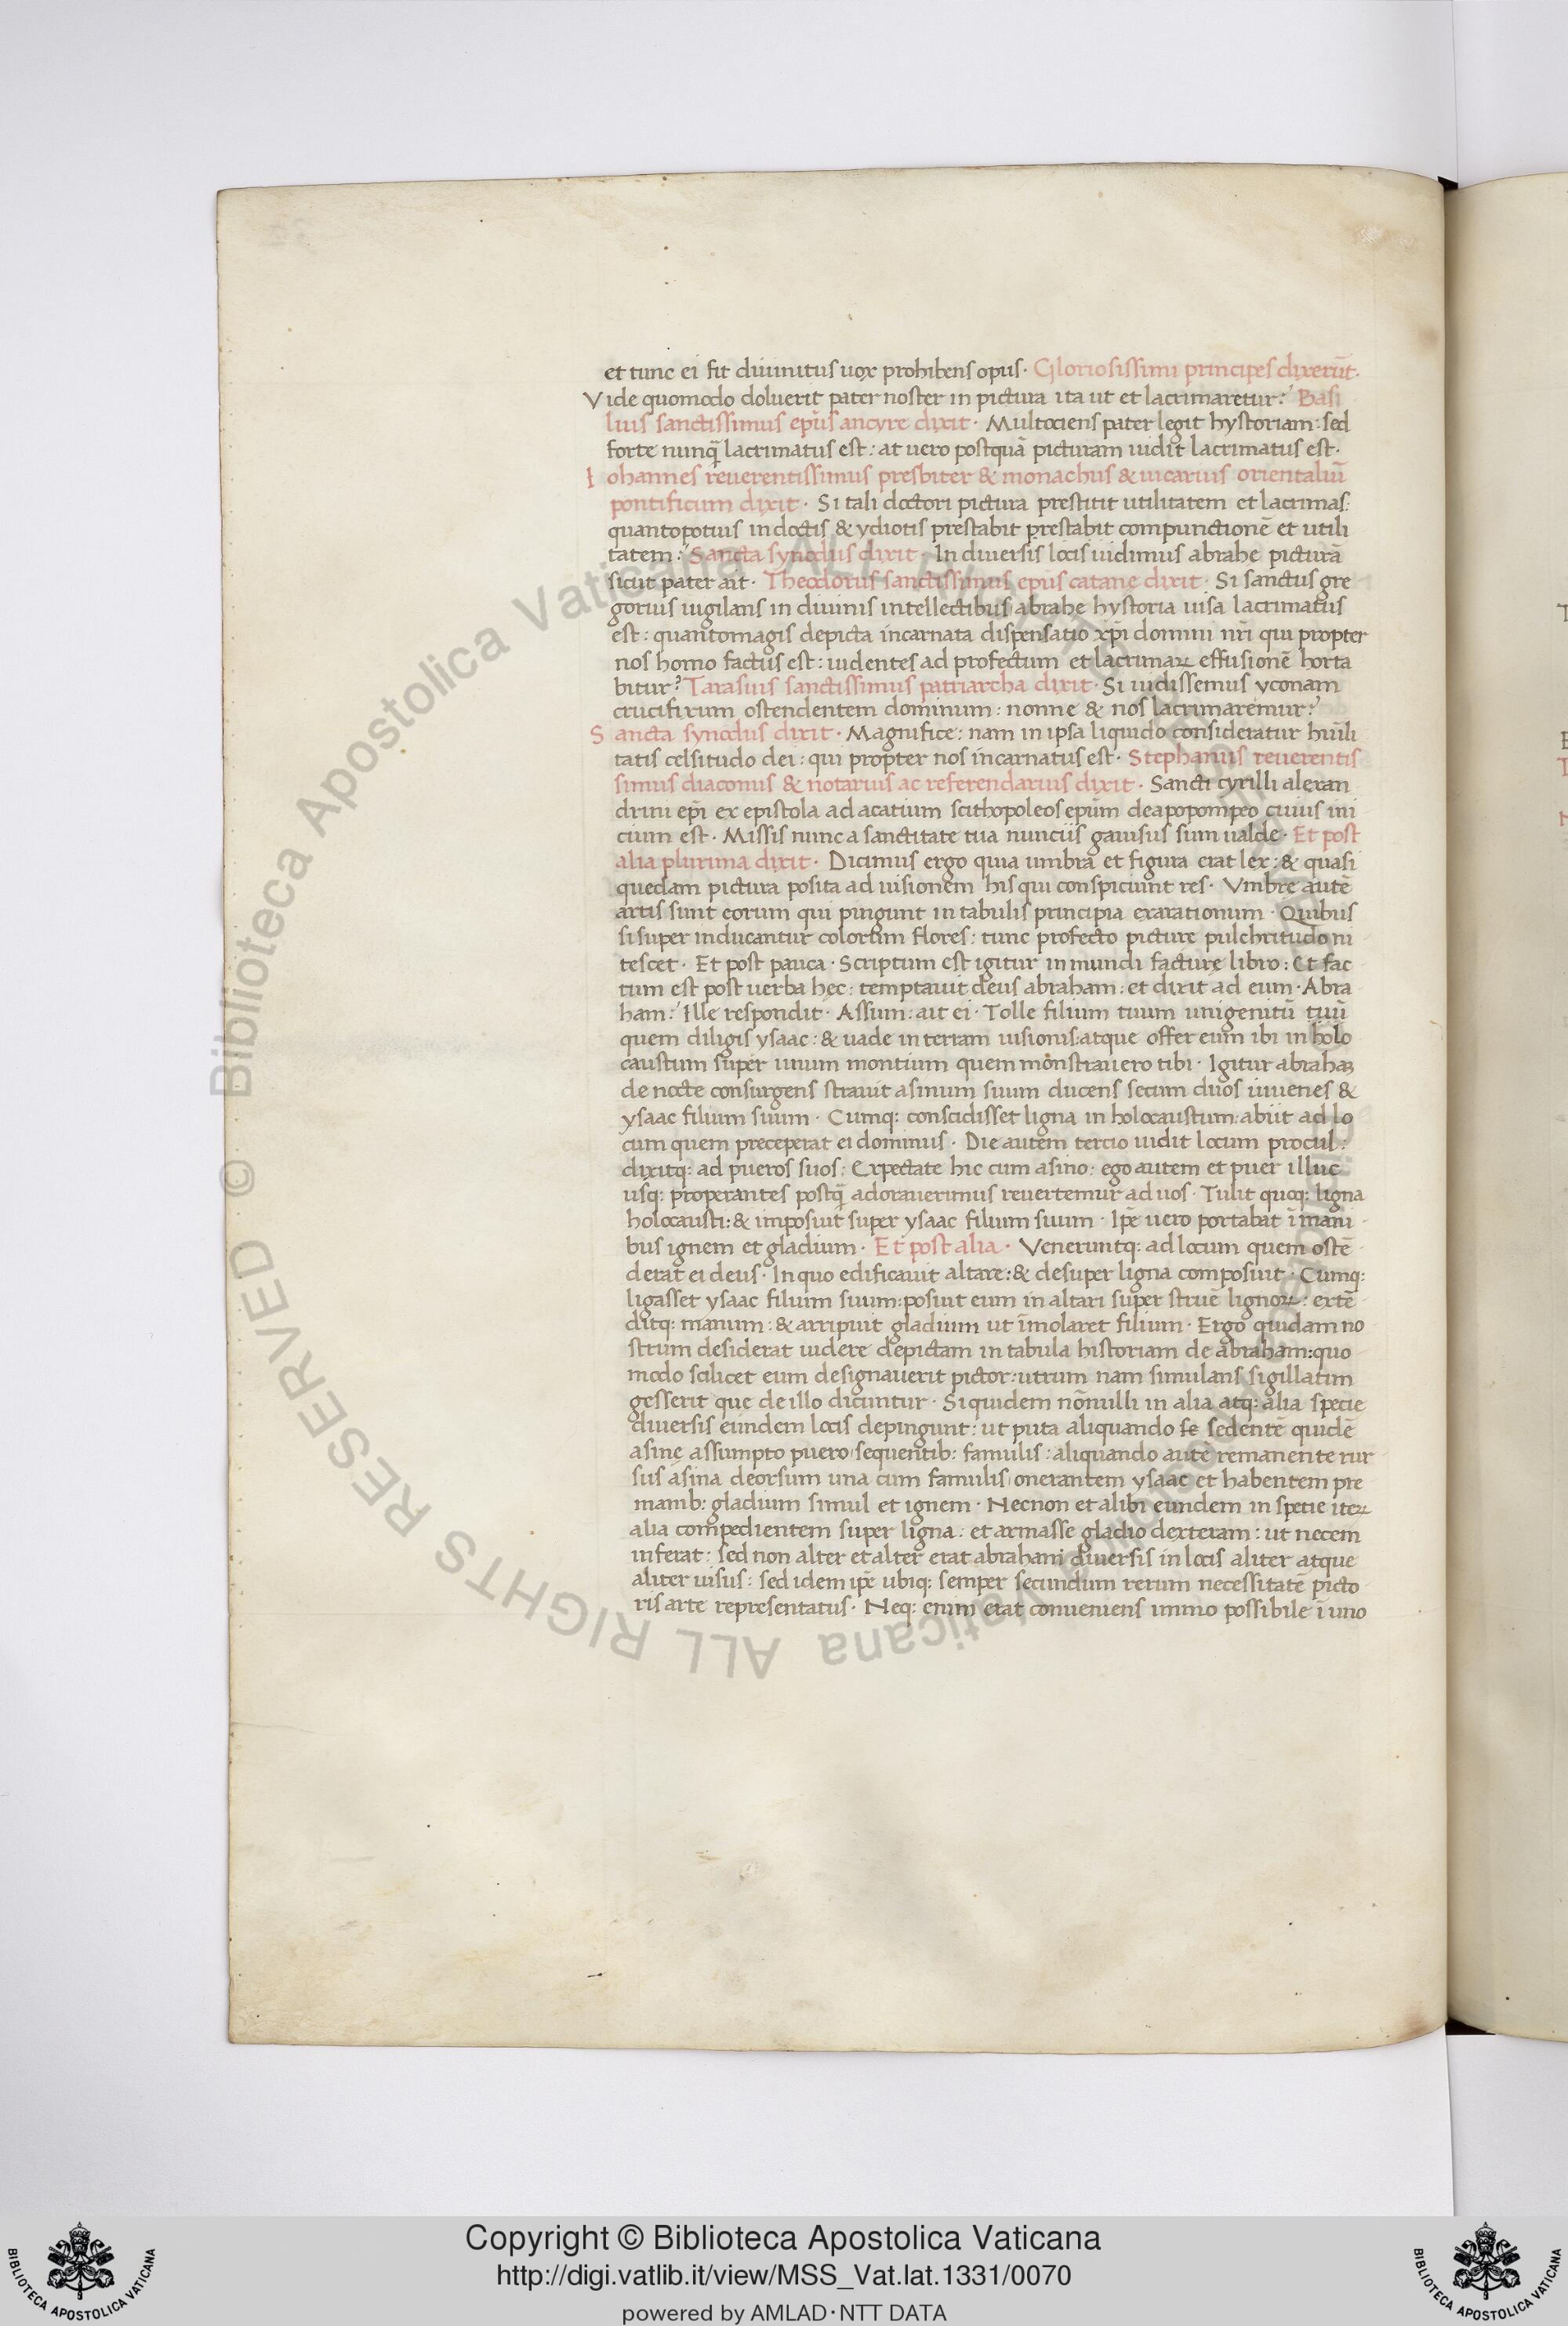 et tunc ei fit diuinitus uox prohibens opus· Gloriosissimi principes dixerūt·
Vide quomodo doluerit pater noster in pictura ita ut et lacrimaretur? Basi
lius sanctissimus ep̄us ancyre dixit· Multociens pater legit hystoriam: sed
forte nunq̄ lacrimatus est: at uero postquā picturam uidit lacrimatus est·
Iohannes reuerentissimus presbiter & monachus & uicarius orientaliū
pontificum dixit· Si tali doctori pictura prestitit utilitatem et lacrimas:
quantopotius indoctis & ydiotis prestabit prestabit compunctionē et utili
tatem? Sancta synodus dixit· In diuersis locis uidimus abrahe picturā
sicut pater ait· Theodorus sanctissimus ep̄us catane dixit· Si sanctus gre
gorius uigilans in diuinis intellectibus abrahe hystoria uisa lacrimatus
est: quantomagis depicta incarnata dispensatio xp̄i domini nr̄i qui propter
nos homo factus est: uidentes ad profectum et lacrimaꝝ effusionē horta
bitur? Tarasius sanctissimus patriarcha dixit· Si uidissemus yconam
crucifixum ostendentem dominum: nonne & nos lacrimaremur?
Sancta synodus dixit· Magnifice: nam in ipsa liquido consideratur hūili
tatis celsitudo dei: qui propter nos incarnatus est· Stephanus reuerentis
simus diaconus & notarius ac referendarius dixit· Sancti cyrilli alexan
drini ep̄i ex epistola ad acatium scithopoleos ep̄um deapopompeo cuius ini
cium est· Missis nunc a sanctitate tua nunciis gauisus sum ualde· Et post
alia plurima dixit· Dicimus ergo quia umbra et figura erat lex: & quasi
quedam pictura posita ad uisionem his qui conspiciunt res· Vmbre autē
artis sunt eorum qui pingunt in tabulis principia exarationum· Quibus
si super inducantur colorum flores: tunc profecto picture pulchritudo ni
tescet· Et post pauca· Scriptum est igitur in mundi facturę libro: Et fac
tum est post uerba hęc: temptauit deus abraham: et dixit ad eum· Abra
ham? Ille respondit· Assum: ait ei· Tolle filium tuum unigenitū tuū
quem diligis ysaac: & uade in terram uisionis: atque offer eum ibi in holo
caustum super unum montium quem monstrauero tibi· Igitur abrahaꝫ
de nocte consurgens strauit asinum suum ducens secum duos iuuenes &
ysaac filium suum· Cumq: conscidisset ligna in holocaustum: abiit ad lo
cum quem preceperat ei dominus· Die autem tercio uidit locum procul:
dixitq: ad pueros suos: Expectate hic cum asino: ego autem et puer illuc
usq: properantes postq̄ adorauerimus reuertemur ad uos· Tulit quoq: ligna
holocausti: & imposuit super ysaac filium suum· Ip̄e uero portabat ī mani
bus ignem et gladium· Et post alia· Veneruntq: ad locum quem ostē
derat ei deus· In quo edificauit altare: & desuper ligna composuit· Cumq:
ligasset ysaac filium suum: posuit eum in altari super struē lignoꝝ: extē
ditq: manum: & arripuit gladium ut īmolaret filium· Ergo quidam no
strum desiderat uidere depictam in tabula historiam de abraham: quo
modo scilicet eum designauerit pictor: utrum nam simulans sigillatim
gesserit que de illo dicuntur· Siquidem nōnulli in alia atq: alia specie
diuersis eundem locis depingunt: ut puta aliquando se sedentē quidē
asinę assumpto puero sequentib: famulis: aliquando autē remanente rur
sus asina deorsum una cum famulis onerantem ysaac et habentem pre
manib: gladium simul et ignem· Necnon et alibi eundem in specie iteꝝ
alia compedientem super ligna: et armasse gladio dexteram: ut necem
inferat: sed non alter et alter erat abraham diuersis in locis aliter atque
aliter uisus: sed idem ip̄e ubiq: semper secundum rerum necessitatē picto
ris arte representatus· Neq: enim erat conueniens immo possibile ī uno
© Biblioteca Apostolica Vaticana ALL RIGHTS RESERVED
© Biblioteca Apostolica Vaticana ALL RIGHTS RESERVED
Copyright © Biblioteca Apostolica Vaticana
http://digi.vatlib.it/view/MSS_Vat.lat.1331/0070
powered by AMLAD·NTT DATA
BIBLIOTECA APOSTOLICA VATICANA
BIBLIOTECA APOSTOLICA VATICANA